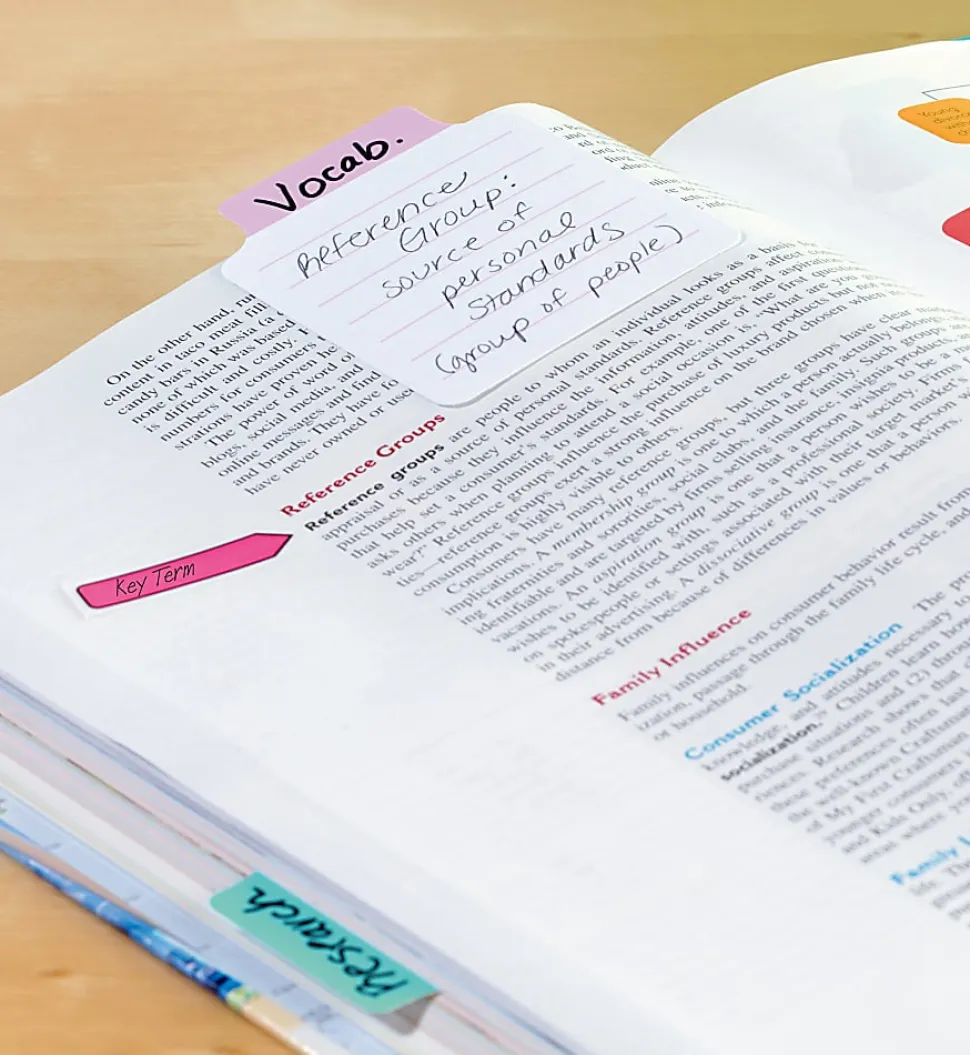 Vocab.
Reference
Group:
source of
personal
standards
(group of people)
On the other hand,
content in taco meat
candy bars in Russia (a
none of which was based
difficult and costly.
numbers for consumers
strations have proven
The power of word of
blogs, social media, and
online messages and
and brands. They have
have never owned or used
Reference Groups
Reference groups are people to whom an individual looks as a basis for
appraisal or as a source of personal standards. Reference groups affect
purchases because they influence the information, attitudes, and aspiration
that help set a consumer's standards. For example, one of the first questions
asks others when planning to attend a social occasion is, "What are you
wear?" Reference groups influence the purchase of luxury products but not
—reference groups exert a strong influence on the brand chosen when
consumption is highly visible to others.
Consumers have many reference groups, but three groups have clear
implications. A membership group is one to which a person actually belongs,
ing fraternities and sororities, social clubs, and the family. Such groups are
identifiable and are targeted by firms selling insurance, insignia products,
vacations. An aspiration group is one that a person wishes to be a
wishes to be identified with, such as a professional society. Firms
on spokespeople or settings associated with their target market's
in their advertising. A dissociative group is one that a person
distance from because of differences in values or behaviors.
Key Term
Family Influence
Family influences on consumer behavior result from
ization, passage through the family life cycle, and
or household.
Consumer Socialization The
knowledge, and attitudes necessary to
socialization. Children learn how
purchase situations and (2) through
riences. Research shows that
these preferences often last
the well-known Craftsman
of My First Craftsman
younger consumers
and Kids Only,
areas where
Family
life. The
Research